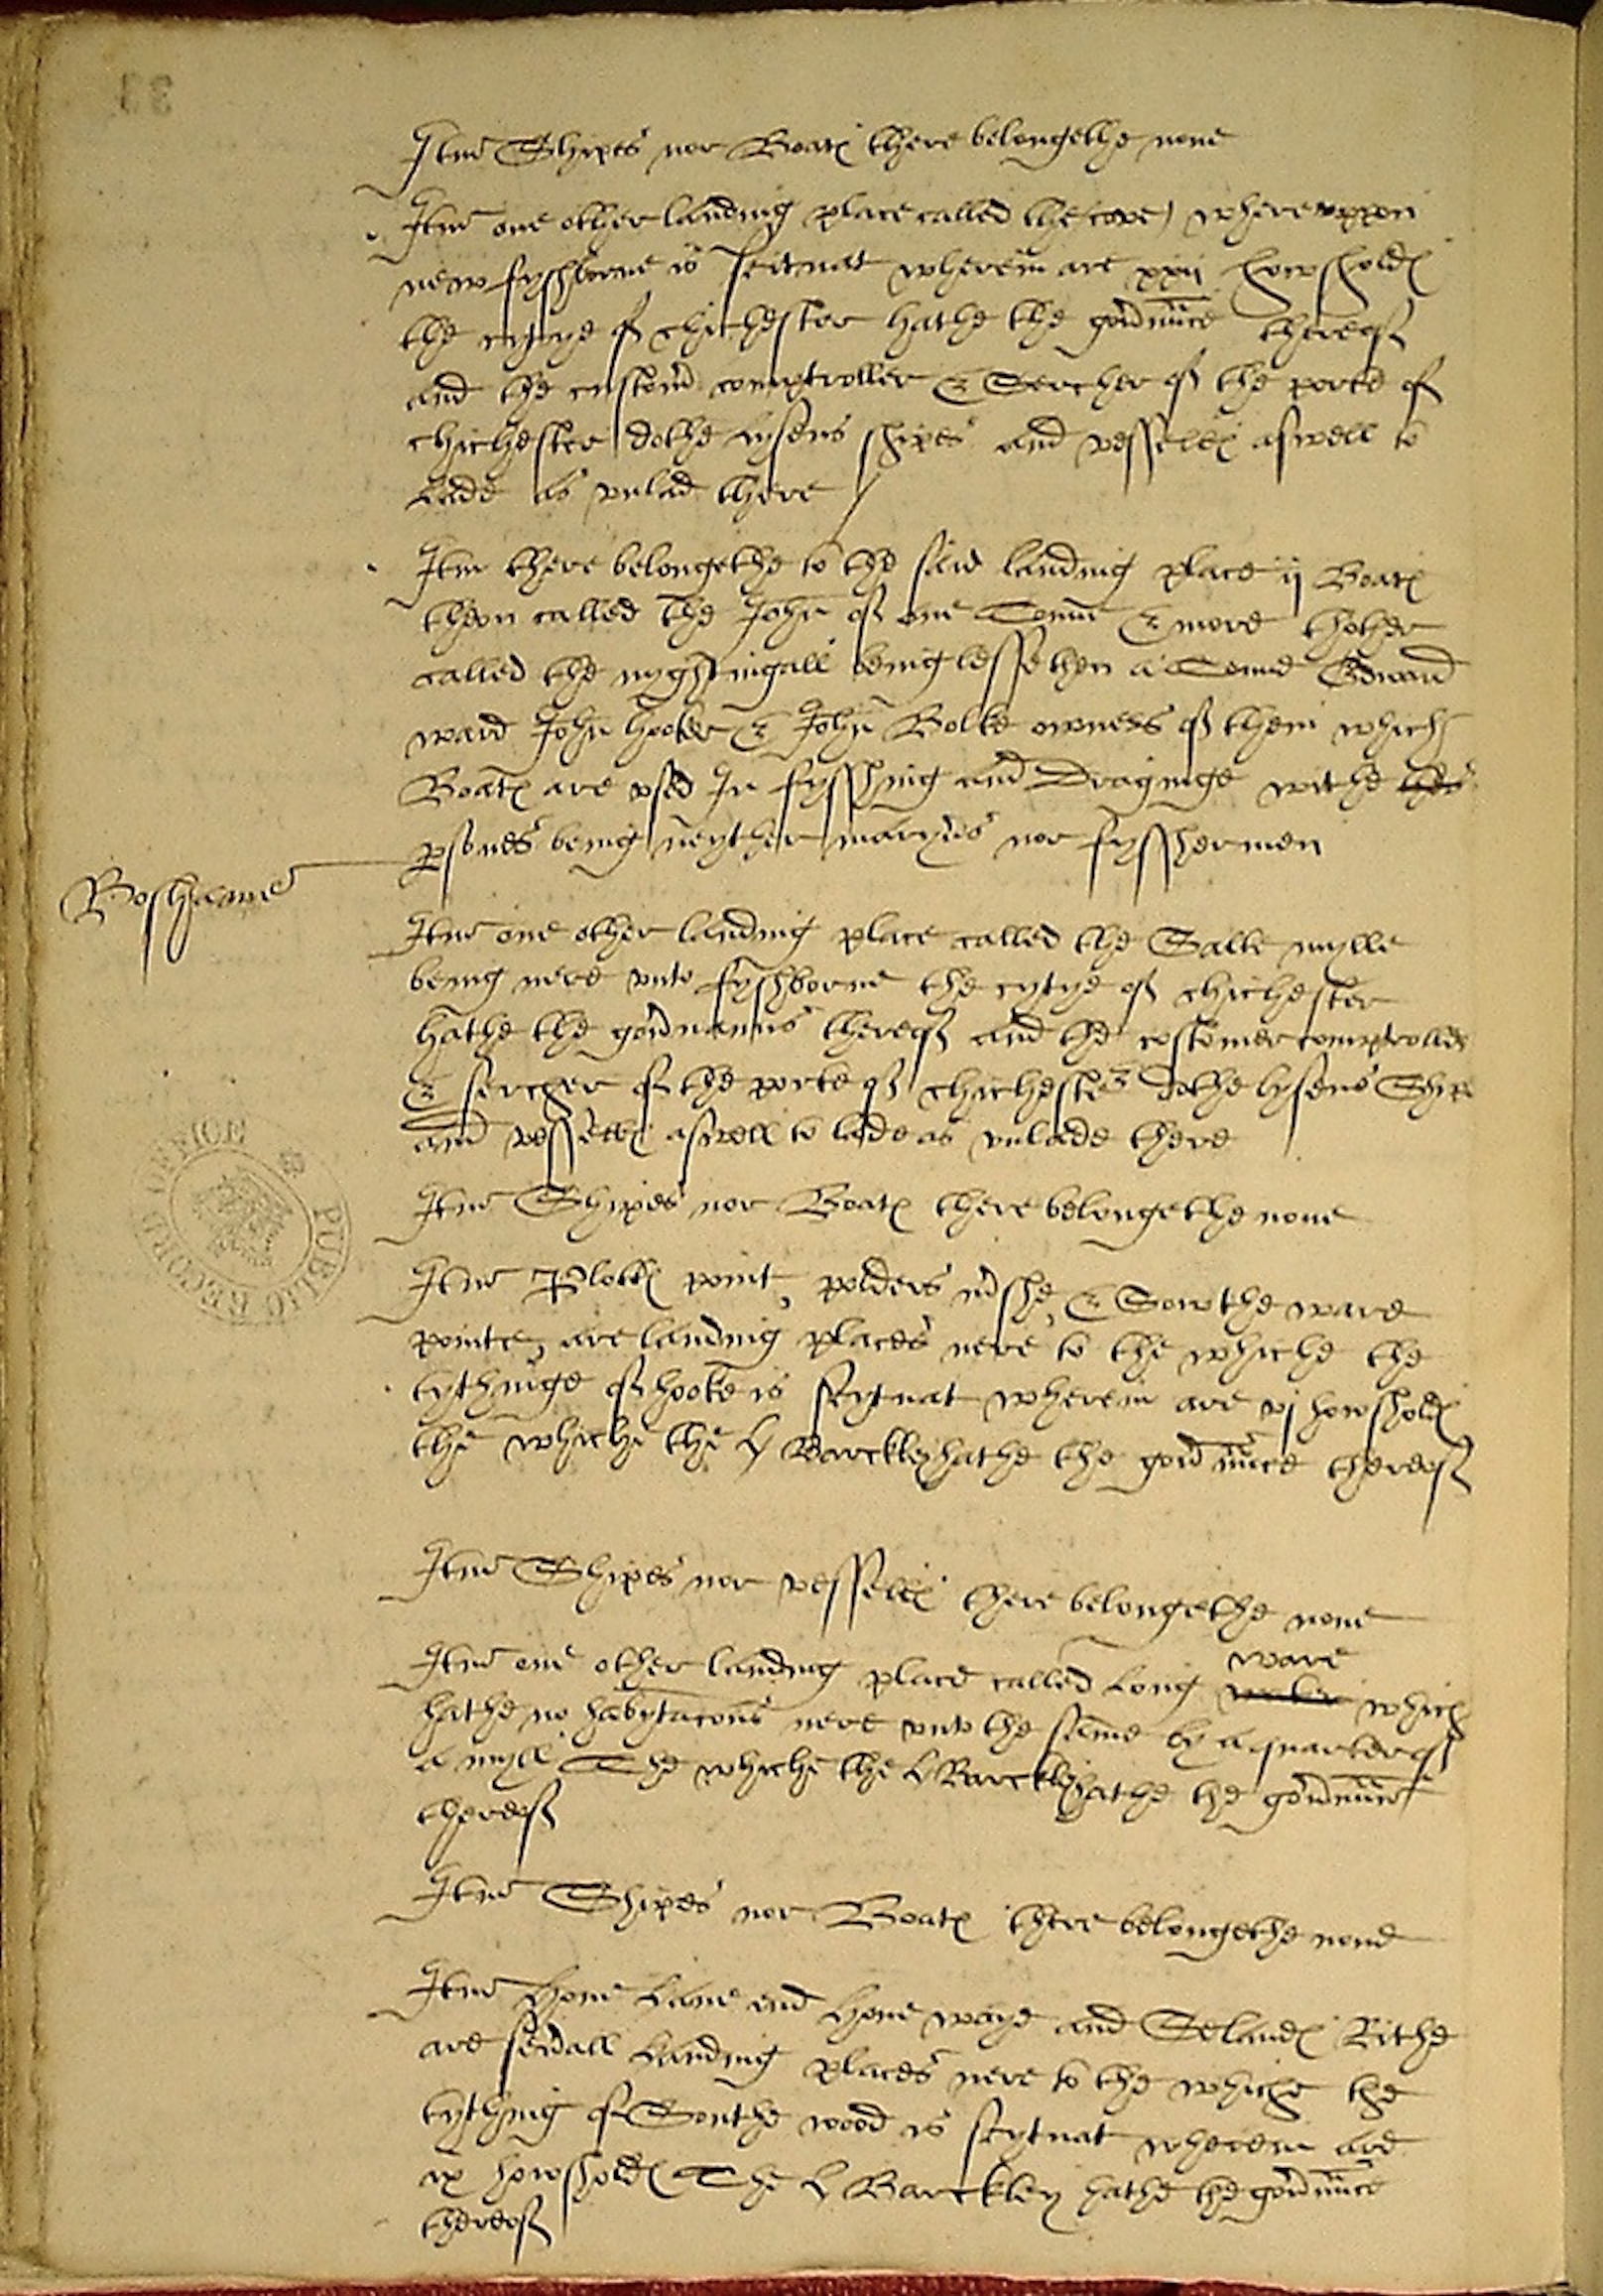 33
Itm Shipes nor Boat there belongethe none
Itm one other landing place called the (cove) where uppon
new fyshborne is scituat wherein are xxii howshold
the cytye of chichester hathe the gov'nance thereof
and the custom' comptroller & Sercher of the porte of
chichester dothe lysens shipes and vessell aswell to
Lade as unlad there /
Itm there belongethe to the said landing place ij Boat
thon called the John of one Tonne & more thother
called the nyghtingall being lesse then a Tonne Edward
ward John hooker & John Bolte owners of them which
Boat are used In fysshing and Draginge withe
psones being neyther maryn's nor fysshermen
Boshame
Itm one other landing place called the Salte mylle
being nere unto fyshborne the cytye of chichester
hathe the gov'nanns thereof and the costomer comptroller
& sercher of the porte of chichester dothe lysens Ship
and vessell aswell to lade as unlade there
Itm Shipes nor Boat there belongethe none
Itm point, polders & Sowthe ware
pointe, are landing places nere to the whiche the
tythinge of hooke is scytuat wherein are vj howshold
the whiche the L Barckley hathe the gov'nnce thereof
Itm Shipes nor vessell there belongethe none
ware
Itm one other landing place called Long which
hathe no habytacons nere unto the same by a quarter of
a myll The whiche the L Barckley hathe the gov'nnce
thereof
Itm Shipes nor Boat there belongethe none
Itm Hone Lane end Hone waye and Rithe
are sev'all Landing places nere to the whiche the
tything of Southe wood is scytuat wherein are
ix howshold The L Barckley hathe the gov'nnce
thereof
PUBLIC RECORD OFFICE